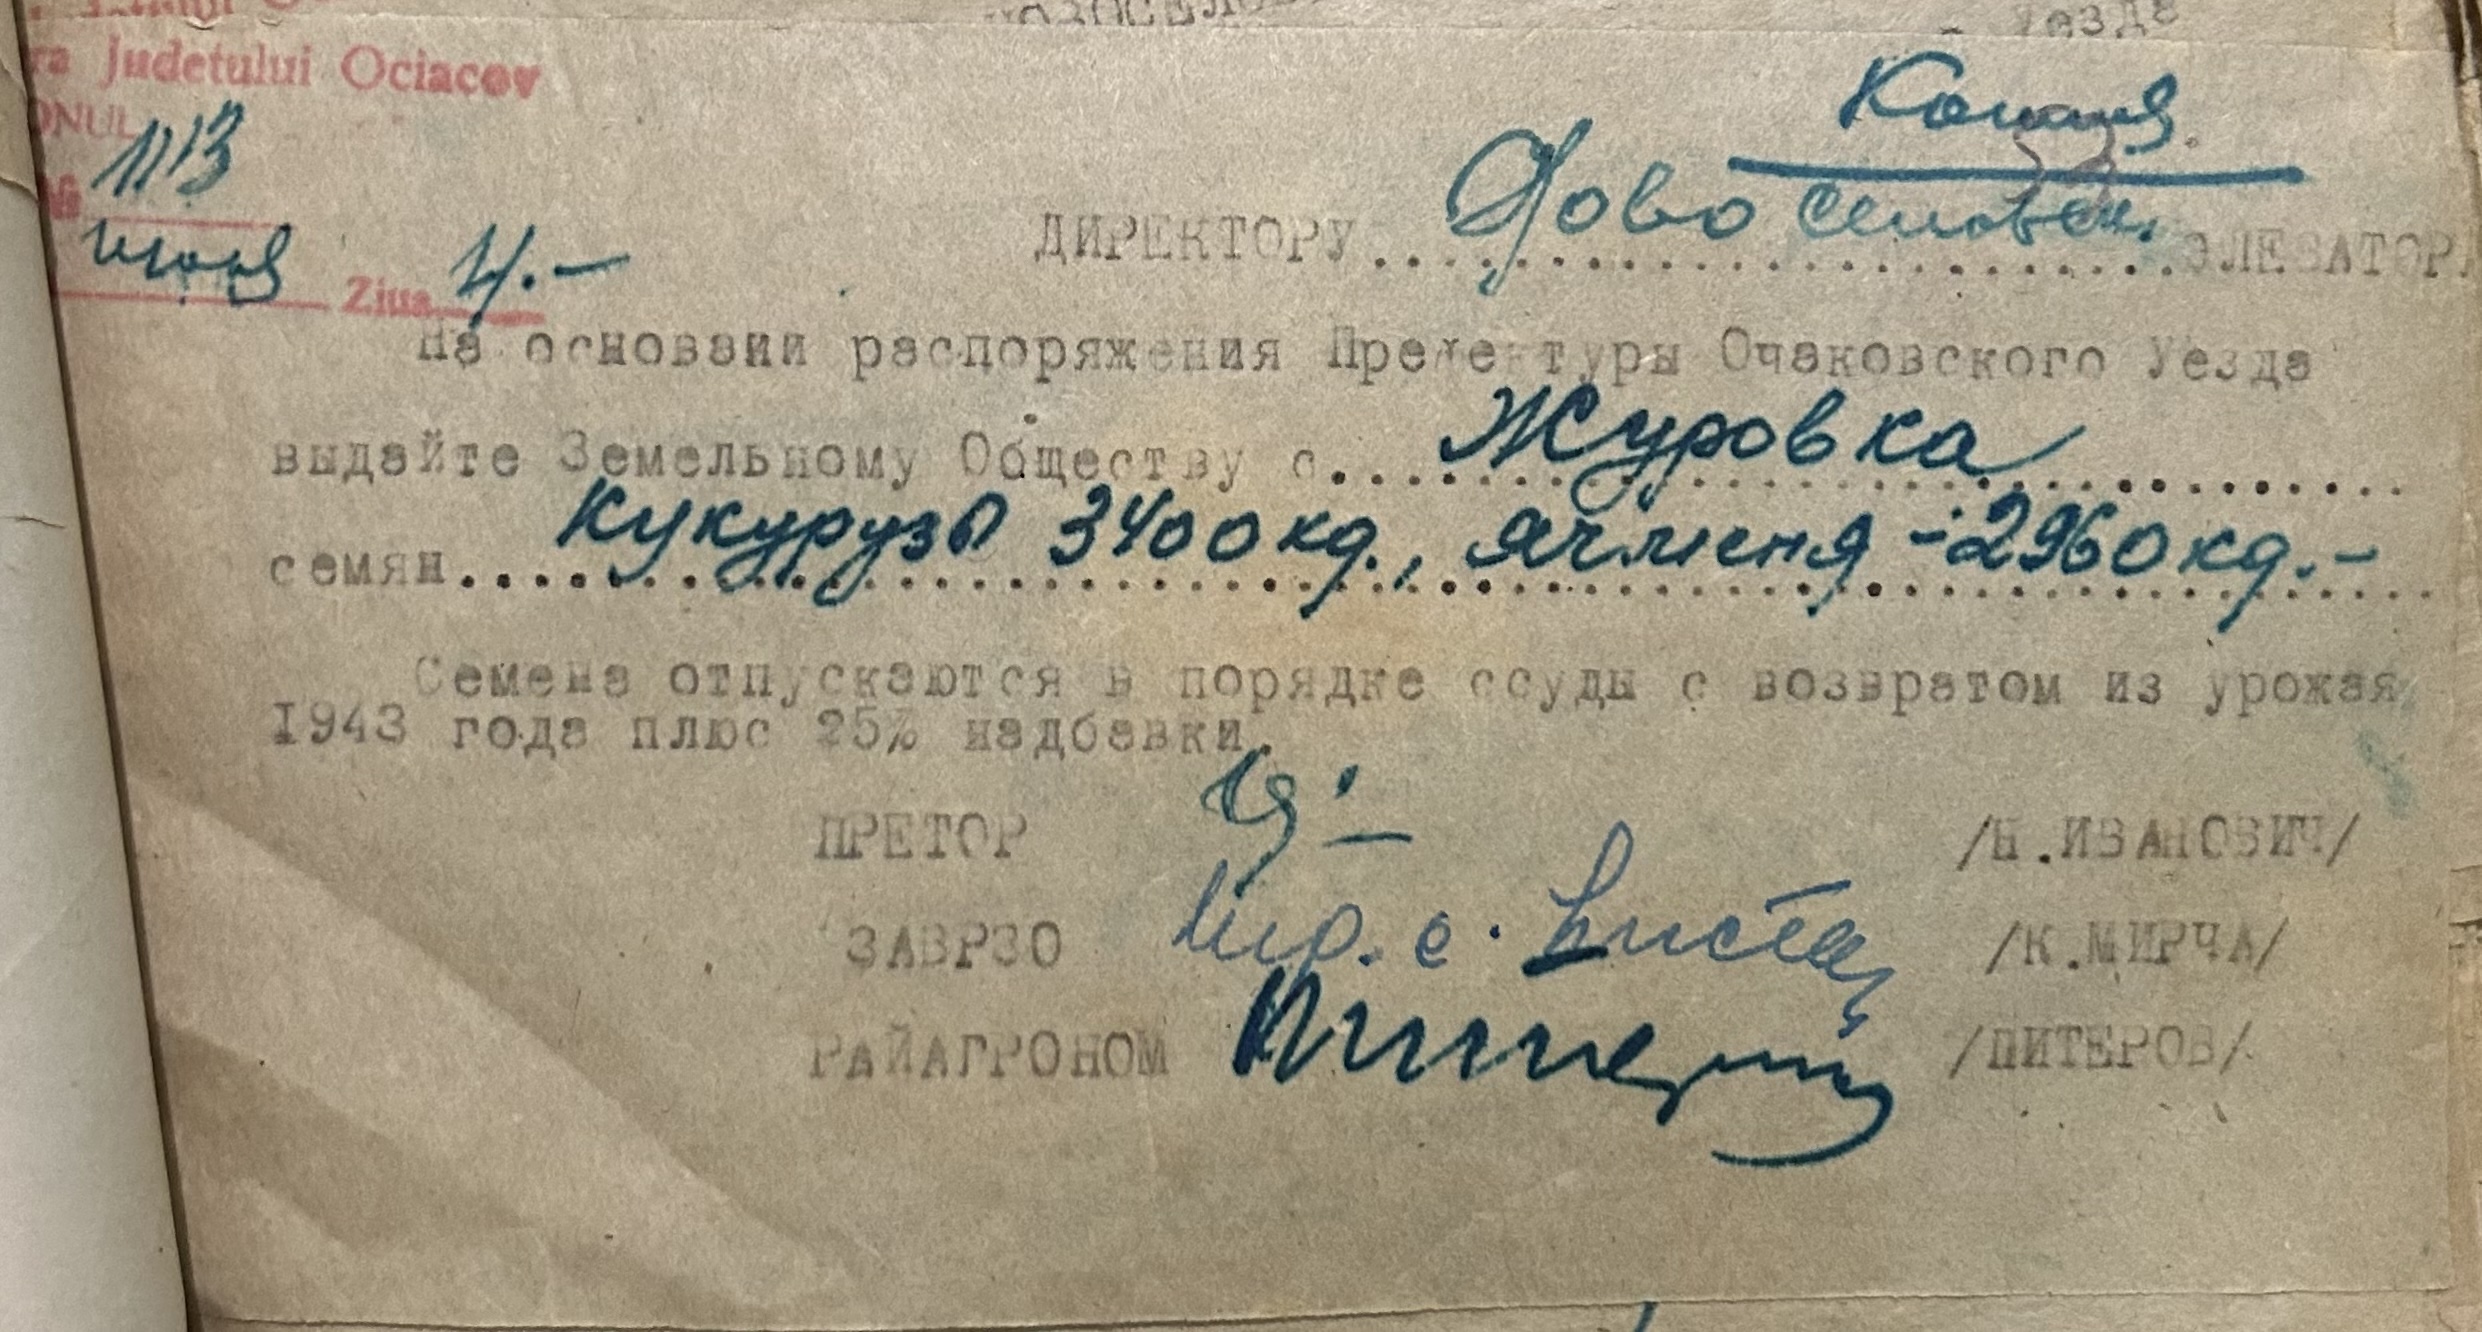 Judetului Ociacov
Копия
1113
июня Ziua 4.-
ДИРЕКТОРУ Ново селовск. ЭЛЕВАТОРА
На основании распоряжения Префектуры Очаковского Уезда
выдайте Земельному Обществу с. Журовка
семян Кукурузы 3400 кг., ячменя - 2960 кг.-
Семена отпускаются в порядке ссуды с возвратом из урожая
1943 года плюс 25% надбавки
ПРЕТОР /Н.ИВАНОВИЧ/
ЗАВРЗО /К.МИРЧА/
РАЙАГРОНОМ /ПИТЕРОВ/